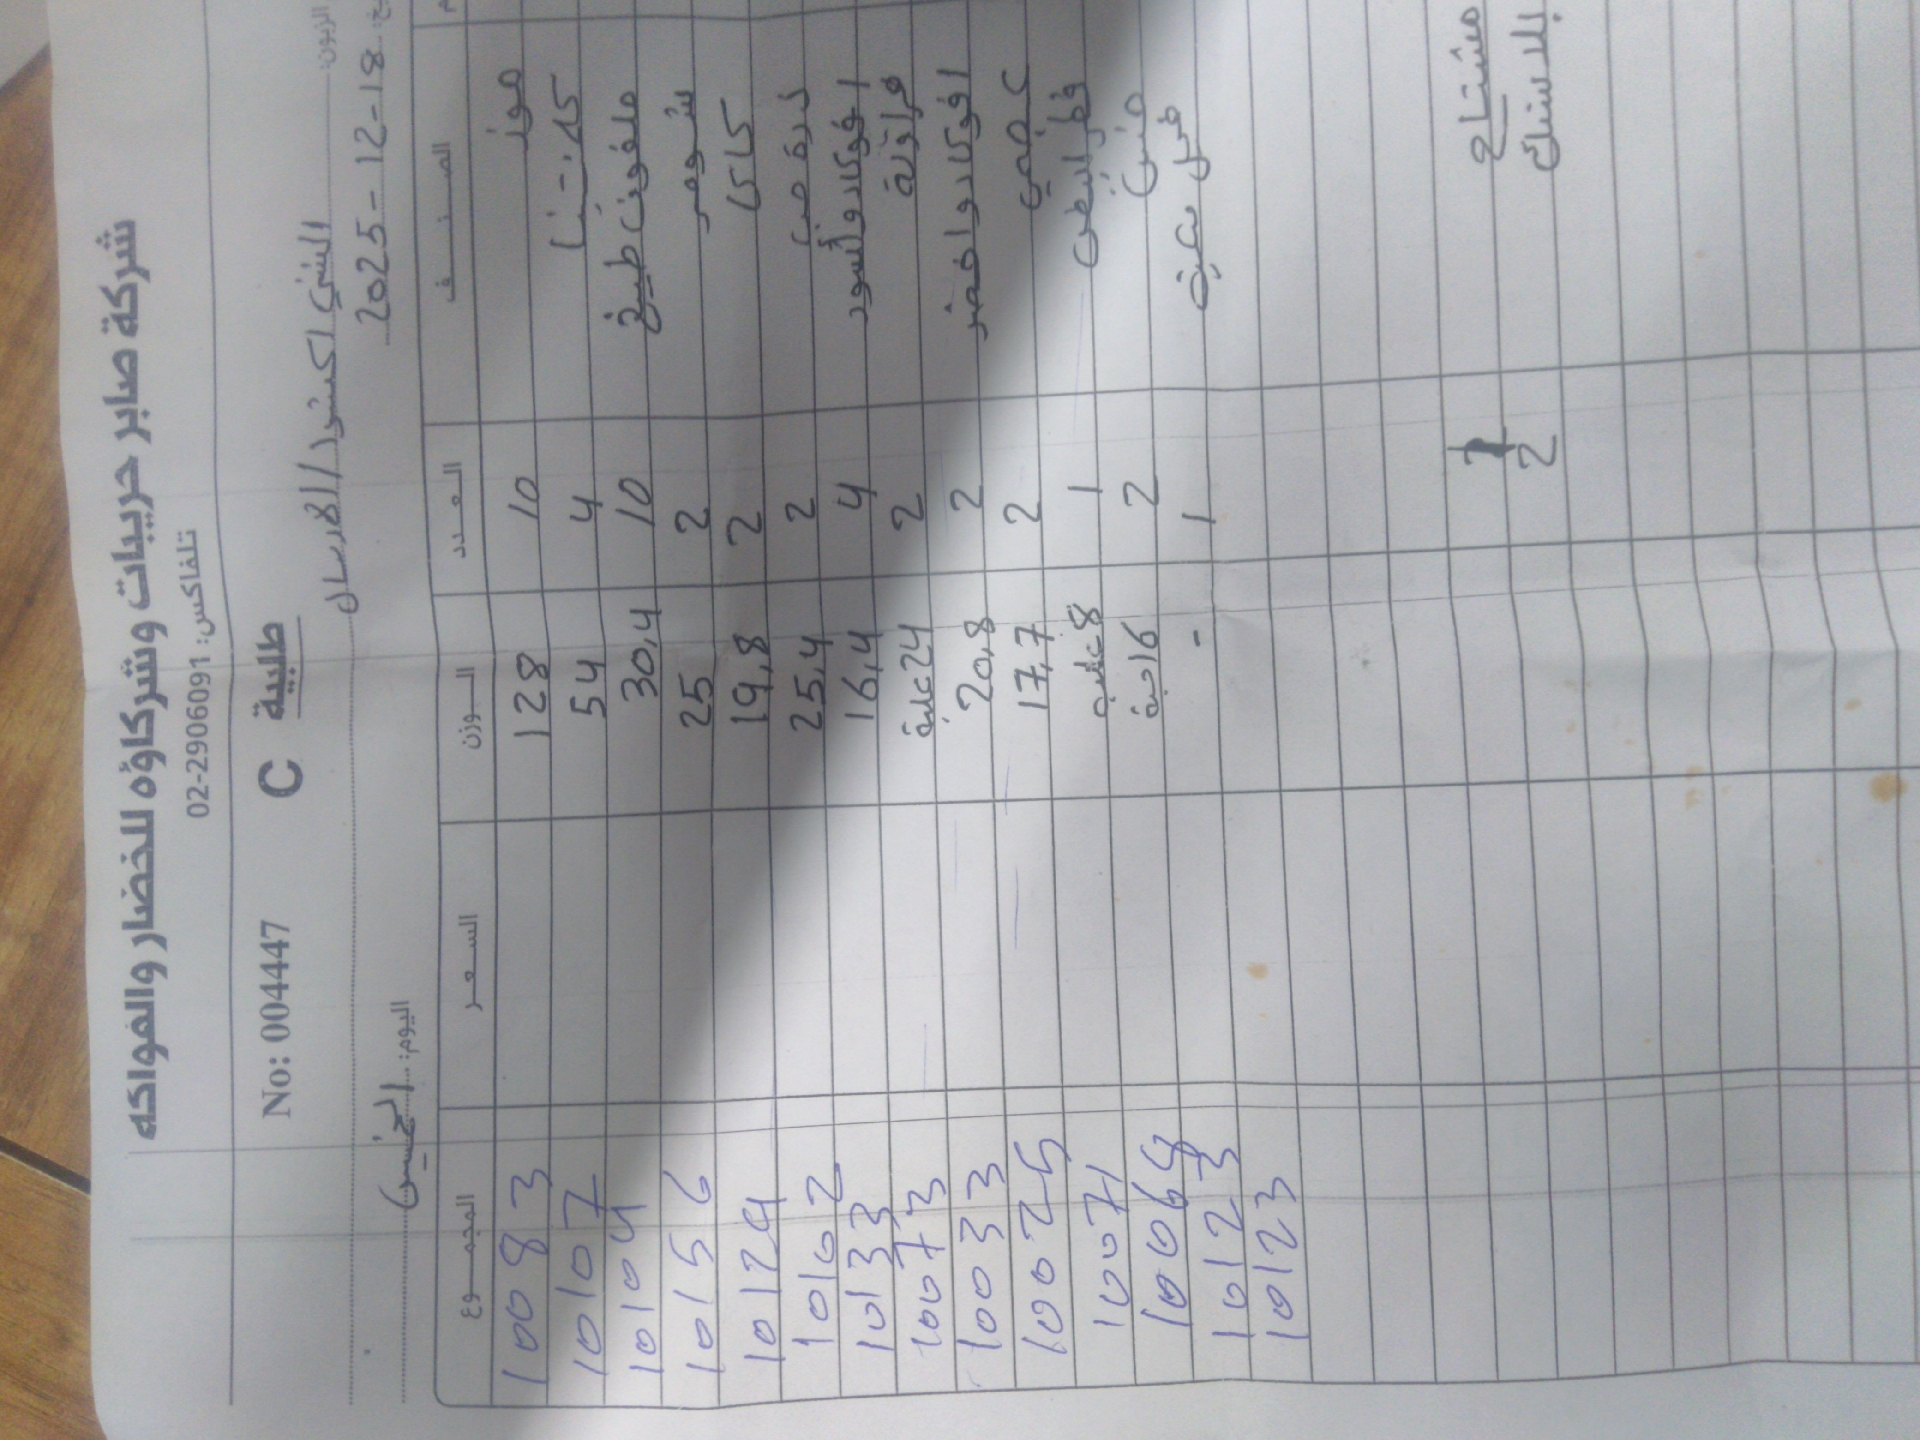 شركة صابر حريبات وشركاؤه للخضار والفواكه
تلفاكس: 02-2906091
No: 004447 C طلبية
الزبون الشني اكسترا / الارسال
2025-12-18 اليوم: الخميس
الصنف العدد الوزن السعر المجموع
موز 10 128 10083
4 54 10107
ملفوف طبيخ 10 30,4 10104
شومر 2 25 10156
كاكا 2 19,8 10124
2 25,4 10102
افوكادو أسود 4 16,4 10133
فراولة 2 24 علبة 10073
افوكادو اخضر 2 20,8 10033
2 17,7 10025
فطر ابيض 1 8 علبه 10071
2 16 حبة 10068
1 - 10123
10123
مشتاح 1
بلاستك 2